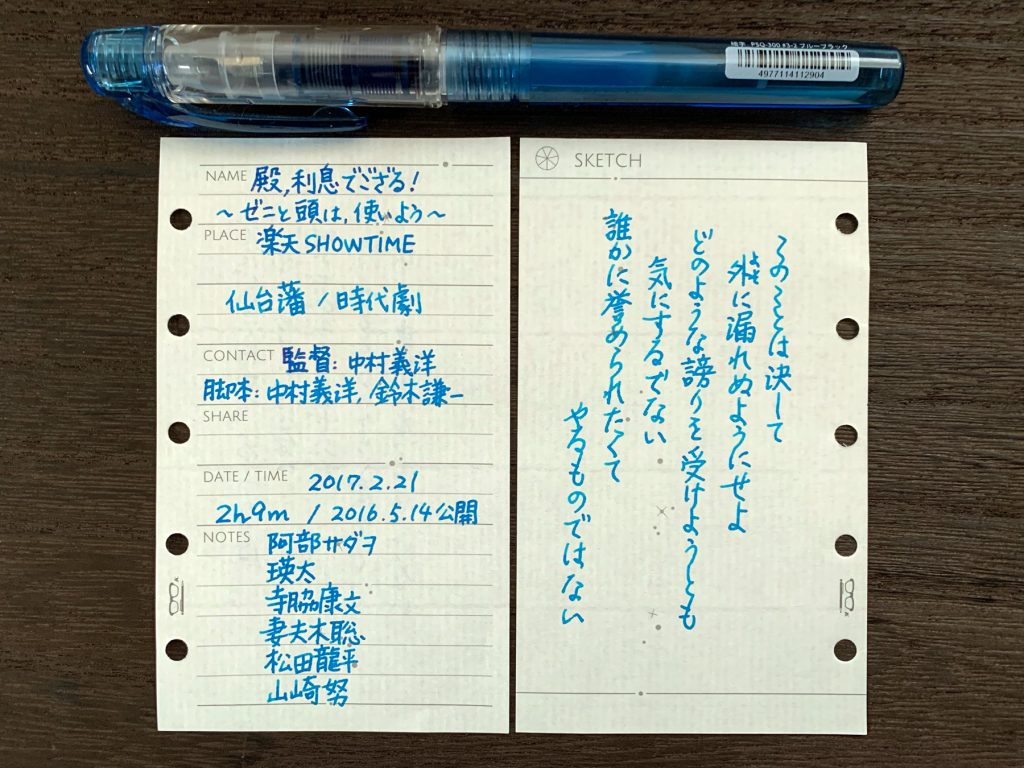 細字 PSQ-300 #3-2 ブルーブラック
4977114112904
NAME 殿,利息でござる!
~ゼニと頭は,使いよう~
PLACE 楽天SHOWTIME
仙台藩 / 時代劇
CONTACT 監督:中村義洋
脚本:中村義洋,鈴木謙一
SHARE
DATE / TIME 2017.2.21
2h9m / 2016.5.14公開
NOTES 阿部サダヲ
瑛太
寺脇康文
妻夫木聡
松田龍平
山崎努
SKETCH
このことは決して
外に漏れぬようにせよ
よそ
どのような謗りを受けようとも
気にするでない
誰かに誉められたくて
やるものではない